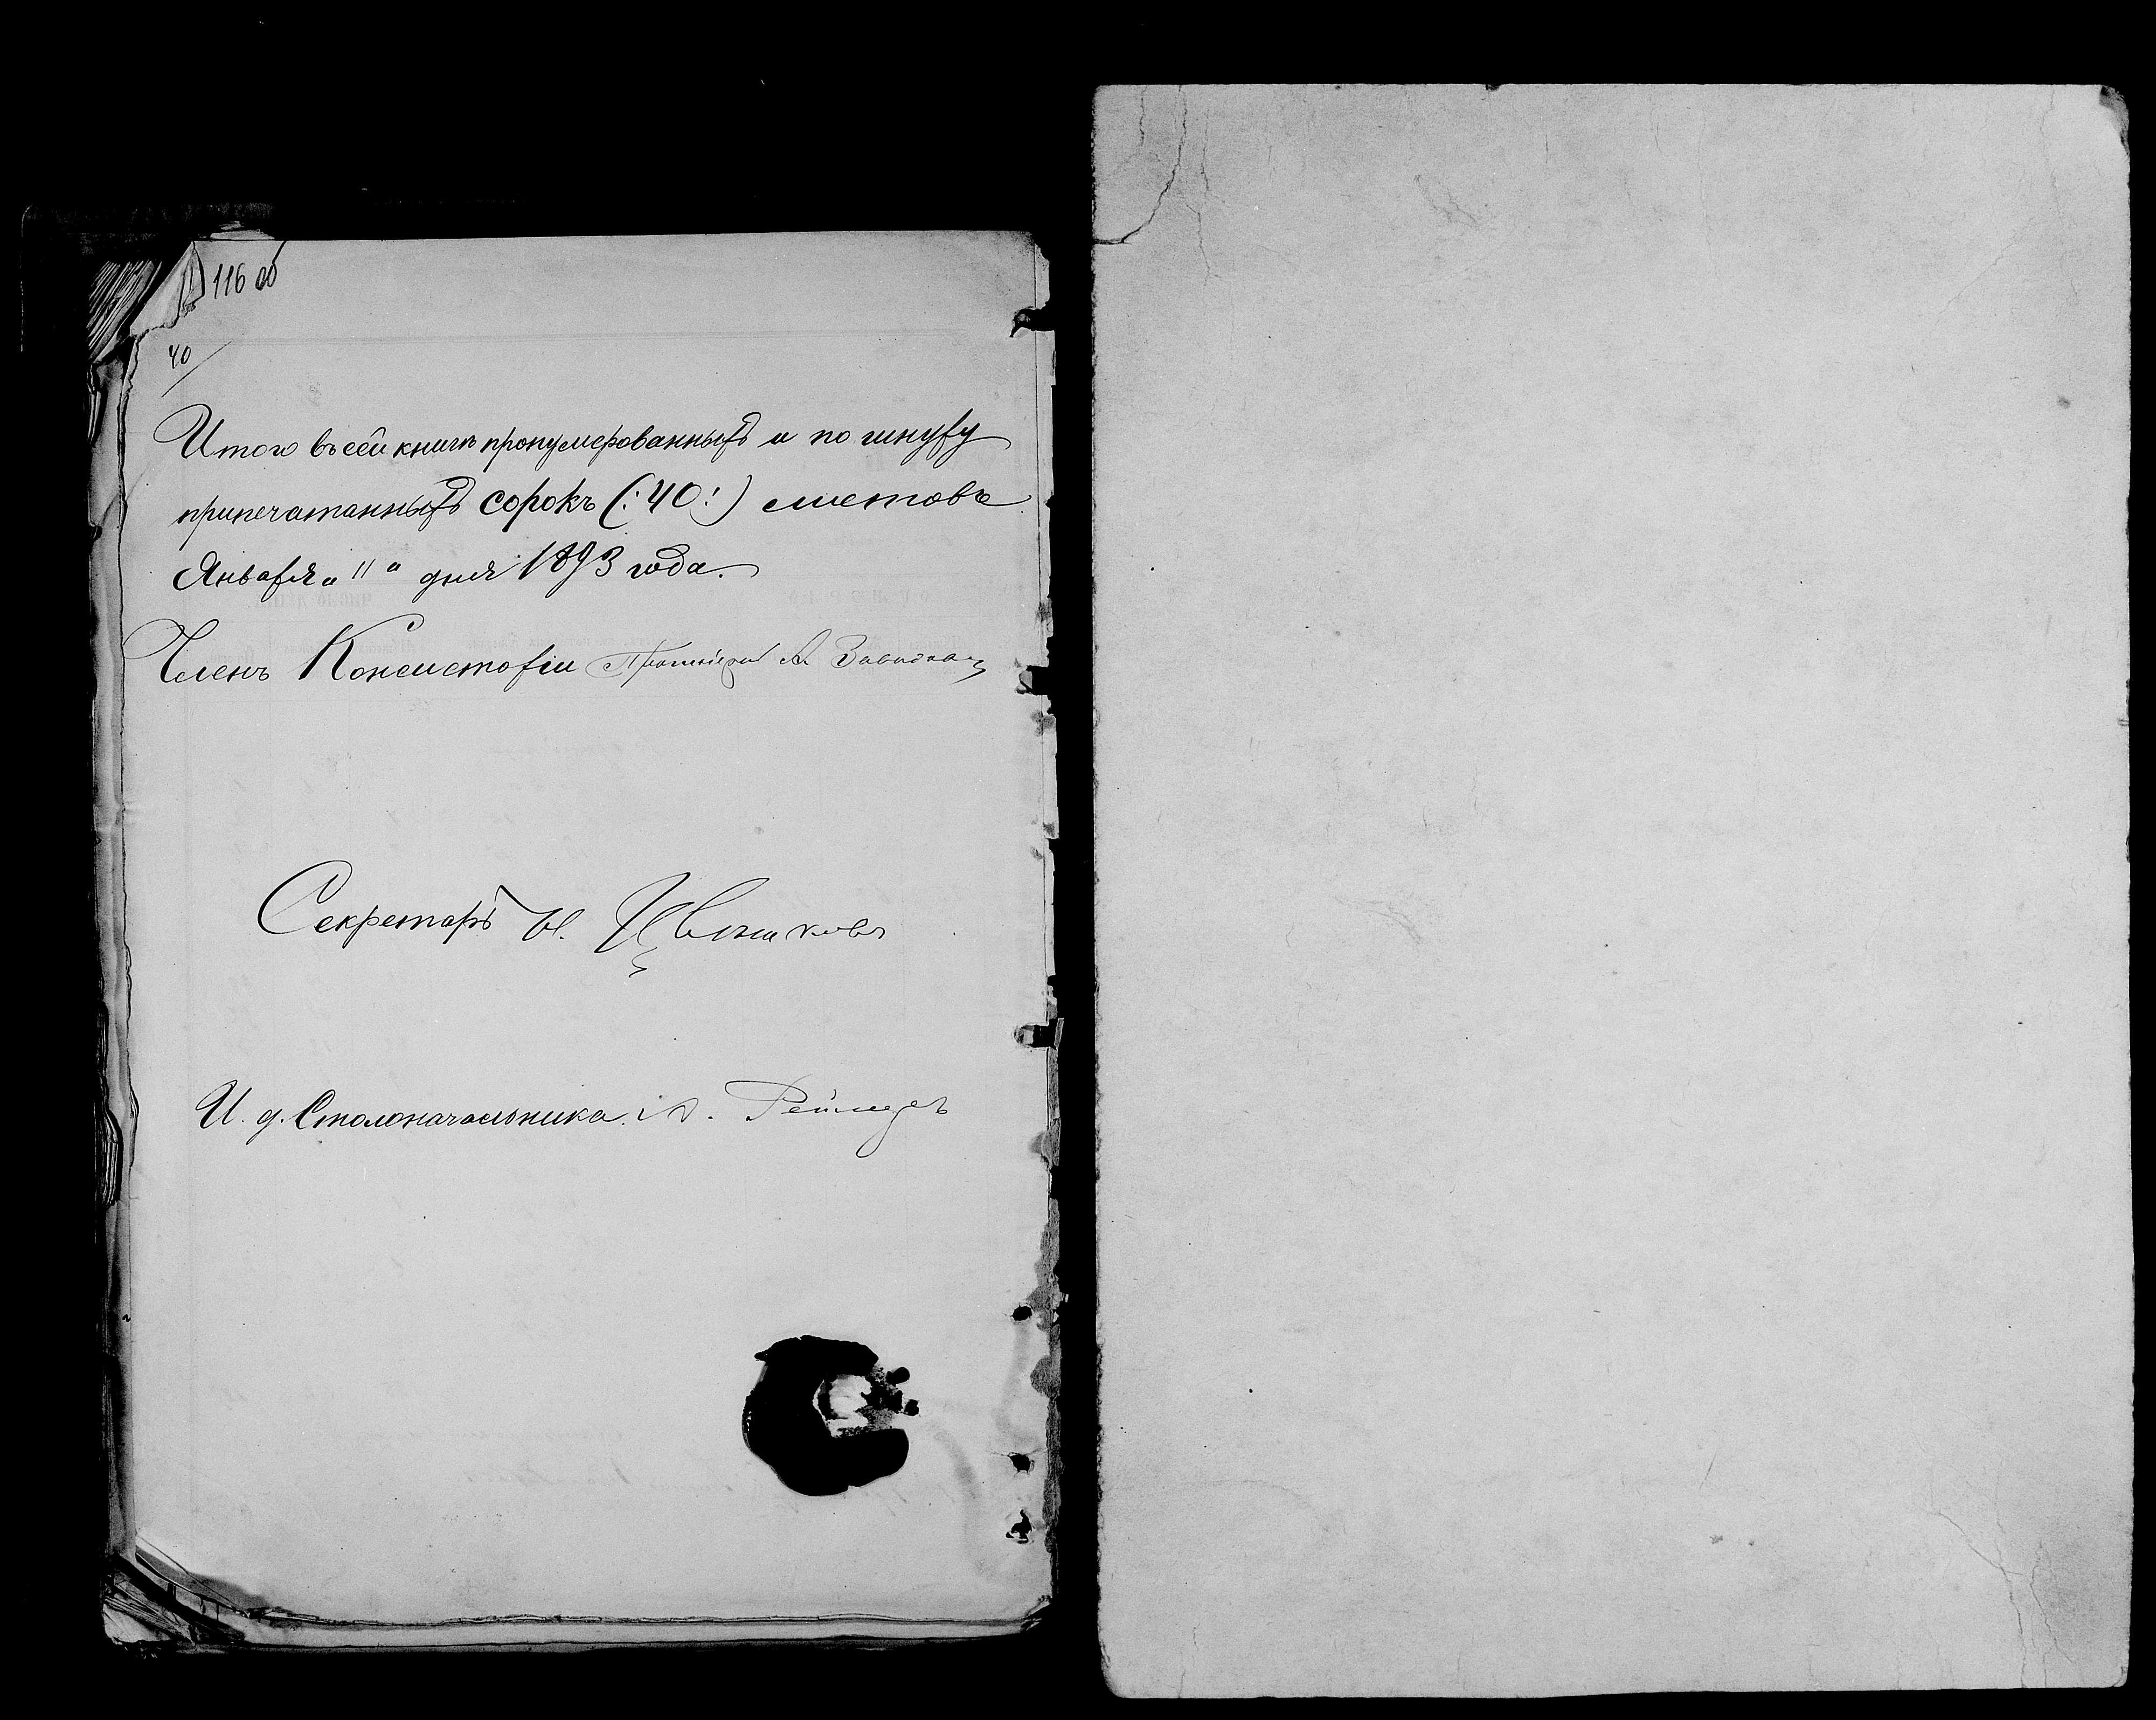 116 об
40
Итого въ сей книгѣ пронумерованныхъ и по шнуру
припечатанныхъ сорокъ (:40:) листовъ
Января „ " “ дня 1893 года.
Членъ Консисторіи Протоіерей А.
Секретарь И. Цвѣтковъ
И. д. Столоначальника